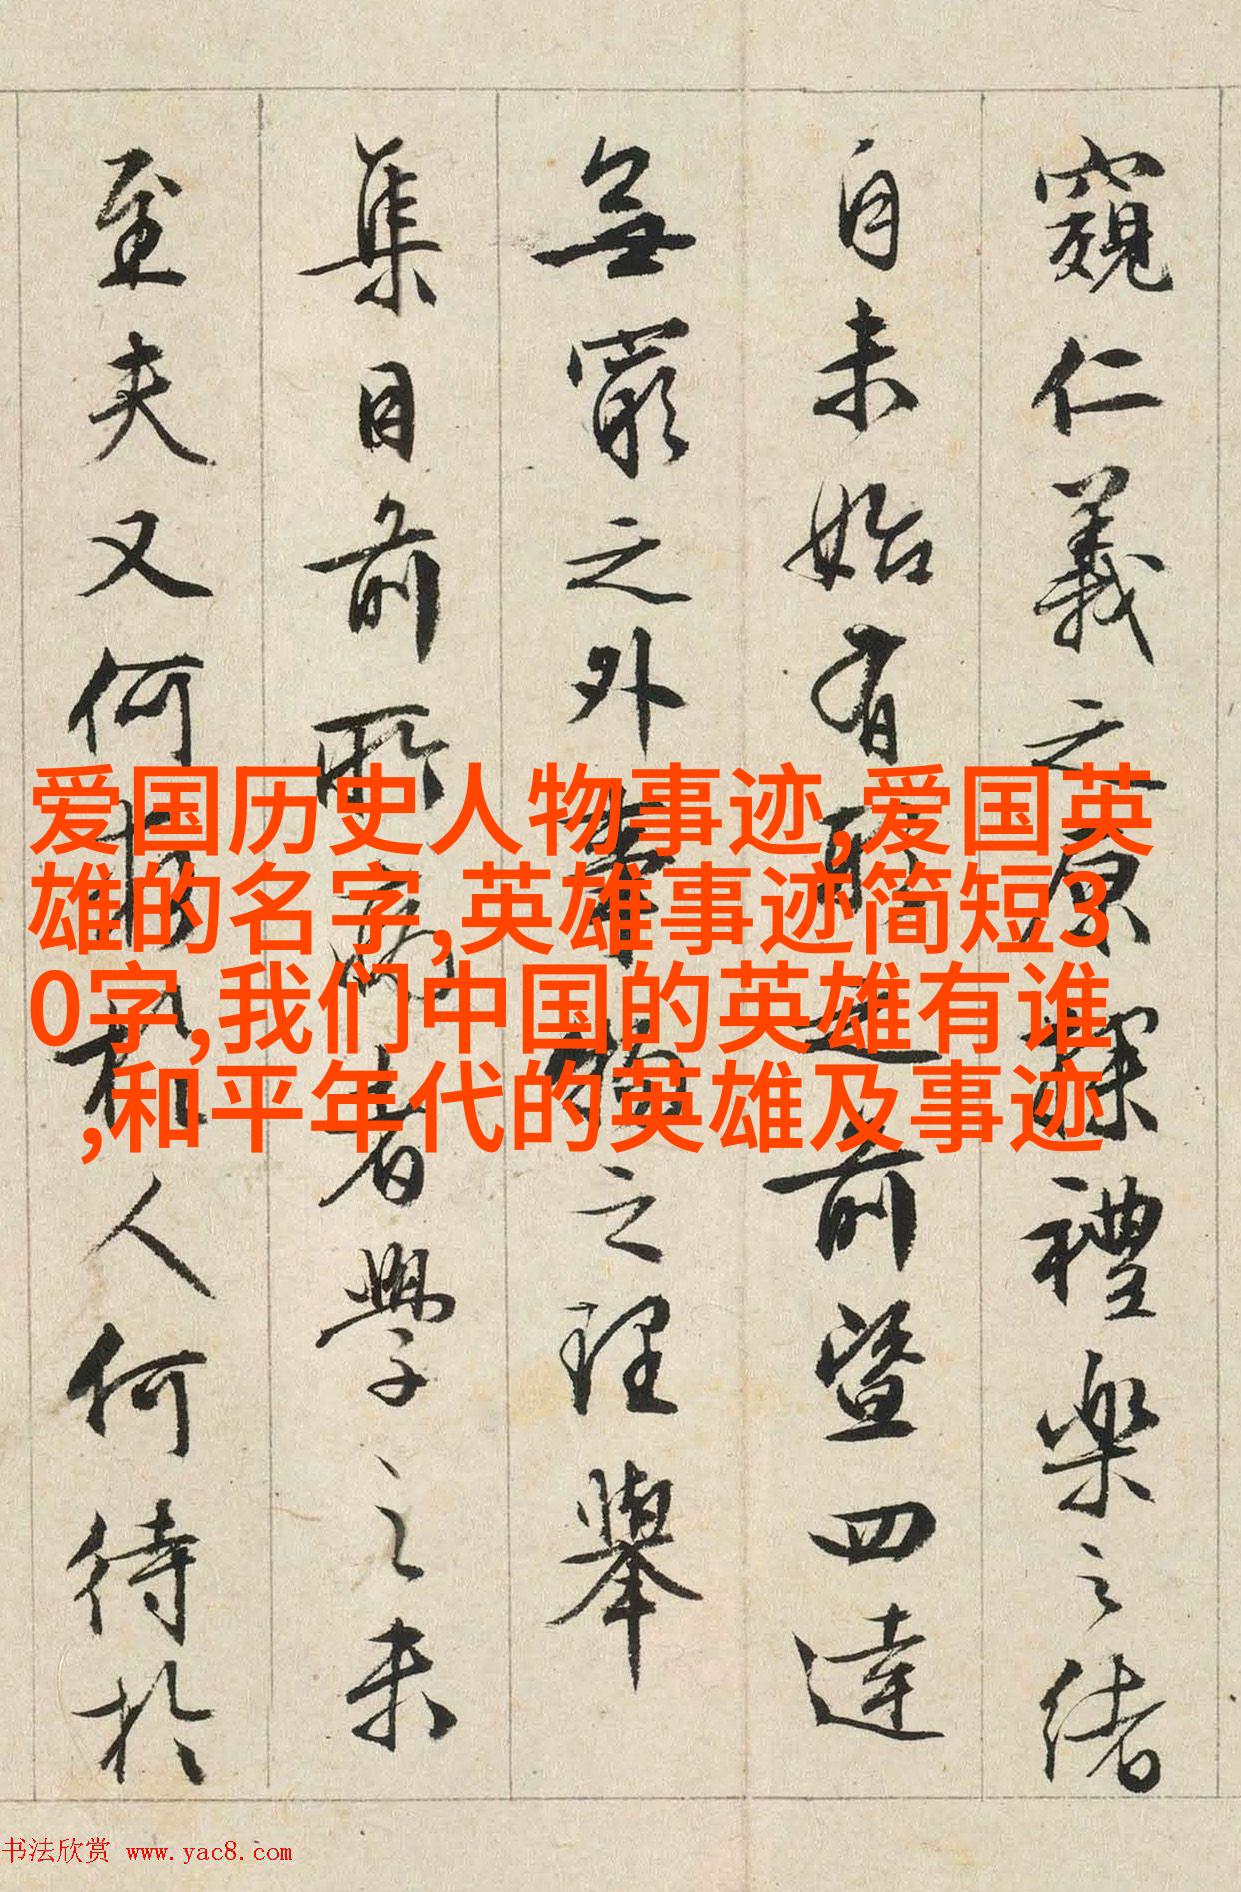 窺仁義之原探禮樂之緒
自未始有形之前暨四達
無窮之外事物之理舉
集目前所病者學之未
至夫又何求於人何待於
爱国历史人物事迹,爱国英
雄的名字,英雄事迹简短3
0字,我们中国的英雄有谁
,和平年代的英雄及事迹
书法欣赏 www.yac8.com